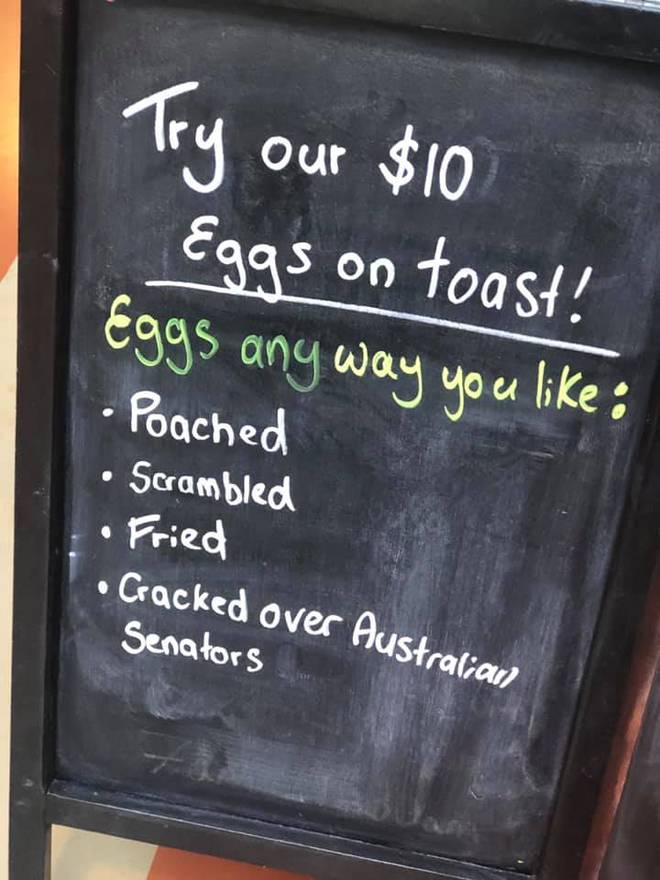 Try our $10
Eggs on toast!
Eggs any way you like:
• Poached
• Scrambled
• Fried
• Cracked over Australian
Senators